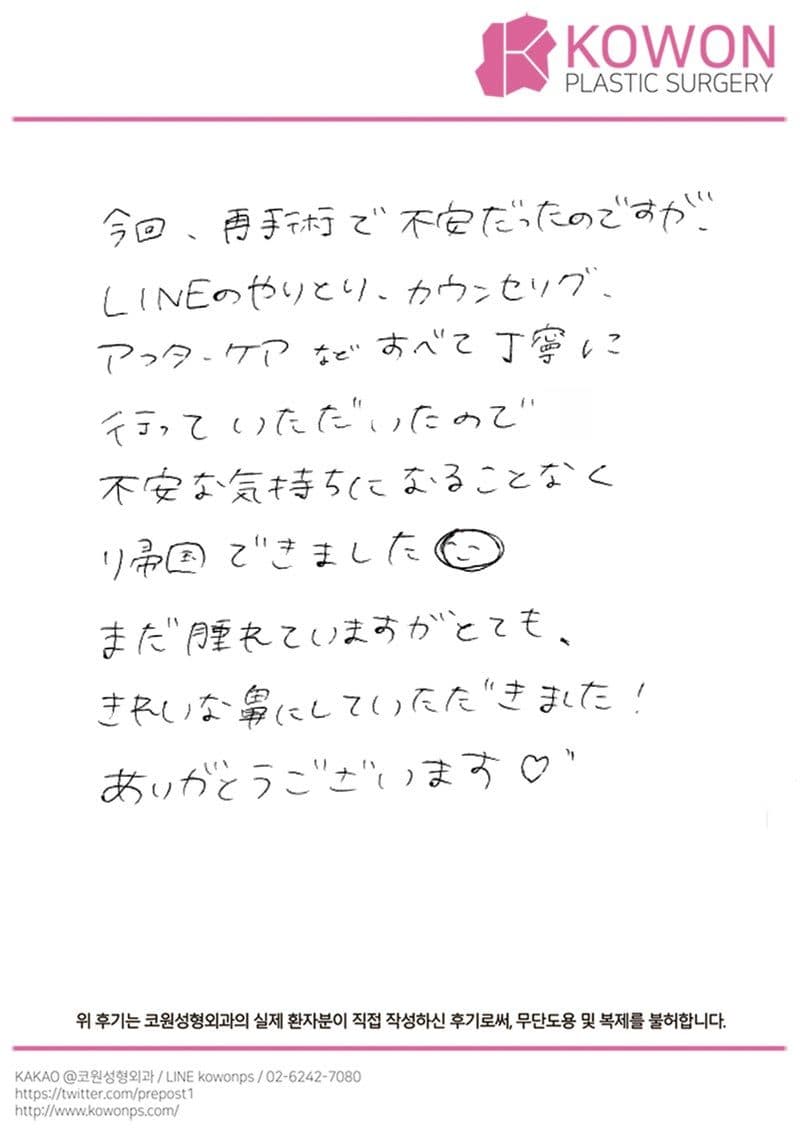 KOWON
PLASTIC SURGERY
今回、再手術で不安だったのですが、
LINEのやりとり、カウンセリング、
アフターケアなどすべて丁寧に
行っていただいたので
不安な気持ちになることなく
帰国できました
まだ腫れていますがとても、
きれいな鼻にしていただきました!
ありがとうございます♡
위 후기는 코원성형외과의 실제 환자분이 직접 작성하신 후기로써, 무단도용 및 복제를 불허합니다.
KAKAO @코원성형외과 / LINE kowonps / 02-6242-7080
https://twitter.com/prepost1
http://www.kowonps.com/